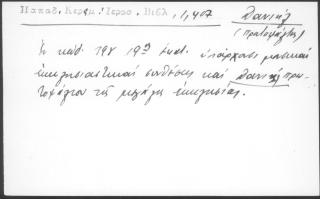 Παπαδ. Κεραμ. Ιεροσ. Βιβλ. 1,407
Δανιήλ
(πρωτοψάλτης)
Ἐν κώδ. 198 19ου ἑκατ. ὑπάρχουσι μουσικαὶ
ἐκκλησιαστικαὶ συνθέσεις καὶ Δανιὴλ πρω-
τοψάλτου τῆς μεγάλης ἐκκλησίας.